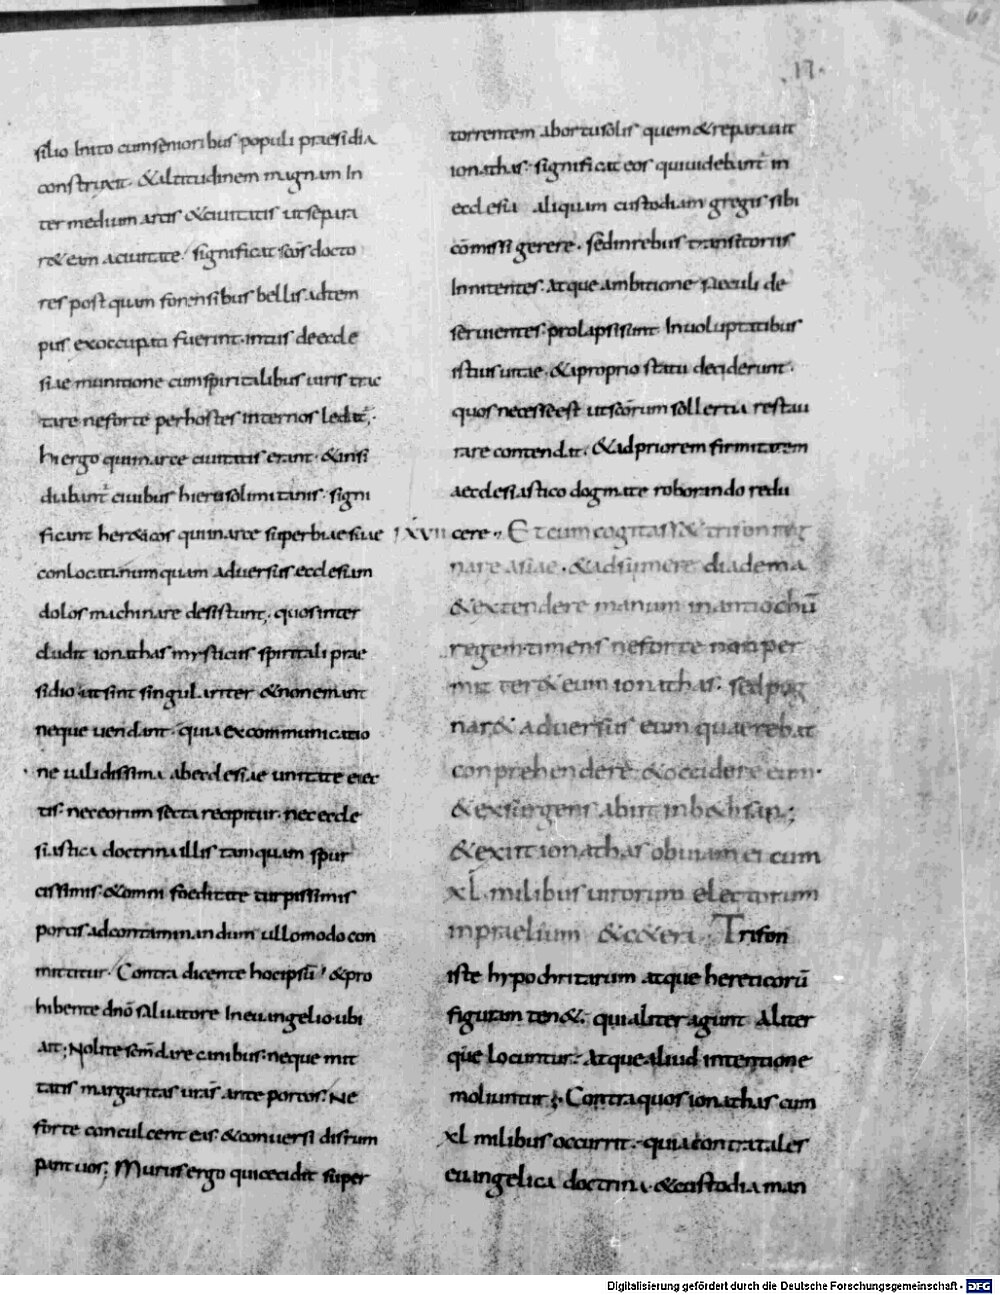 .17.
silio Inito cum senioribus populi praesidia
construxit. & altitudinem magnam In
ter medium arcis & ciuitatis ut separa
r& eam a ciuitate. significat scos docto
res post quam forensibus bellis ad tem
pus exoccupati fuerint. intus de eccle
siae munitione cum spiritalibus uiris trac
tare ne forte per hostes internos led&ur;
hi ergo qui in arce ciuitatis erant. & insi
diabantur ciuibus hierusolimitanis. signi
ficant her&icos qui in arce superbiae suae
conlocati numquam aduersus ecclesiam
dolos machinare desistunt; quos inter
cludit ionathas mysticus spiritali prae
sidio ut sint singulariter & non emant
neque uendant. quia excommunicatio
ne ualidissima ab ecclesiae unitate eiec
tis. nec eorum secta recipitur. nec eccle
siastica doctrina illis tamquam spur
cissimis & omni foeditate turpissimis
porcis ad contaminandum ullo modo con
mittitur. Contra dicente hoc ipsū & pro
hibente dnō saluatore In euangelio ubi
ait; Nolite scm dare canibus. neque mit
tatis margaritas uras ante porcos. Ne
forte conculcent eas. & conuersi disrum
pant uos; Murus ergo qui cecidit super
torrentem ab ortu solis quem & reparauit
ionathas. significat eos qui uidebantur in
ecclesia aliquam custodiam gregis sibi
cōmissi gerere. sed in rebus transitoriis
Innitentes. atque ambitione saeculi de
seruientes. prolapsi sunt In uoluptatibus
istius uitae. & a proprio statu deciderunt.
quos necesse est ut scōrum sollertia restau
rare contendit. & ad priorem firmitatem
aecclesiastico dogmate roborando redu
LXVII cere. Et cum cogitass& trifon reg
nare asiae. & adsumere diadema
& extendere manum in antiochū
regem. timens ne forte non per
mitter& eum ionathas. sed pug
nar& aduersus eum quaerebat
conprehendere & occidere eum.
& exsurgens abiit in b&hsan;
& exiit ionathas obuiam ei cum
xl. milibus uirorum electorum
in praelium & c&era. Trifon
iste hypochritarum atque hereticorū
figuram ten&. qui aliter agunt aliter
que locuntur. Atque aliud intentione
moliuntur; Contra quos ionathas cum
xl milibus occurrit. quia contra tales
euangelica doctrina. & custodia man
Digitalisierung gefördert durch die Deutsche Forschungsgemeinschaft - DFG